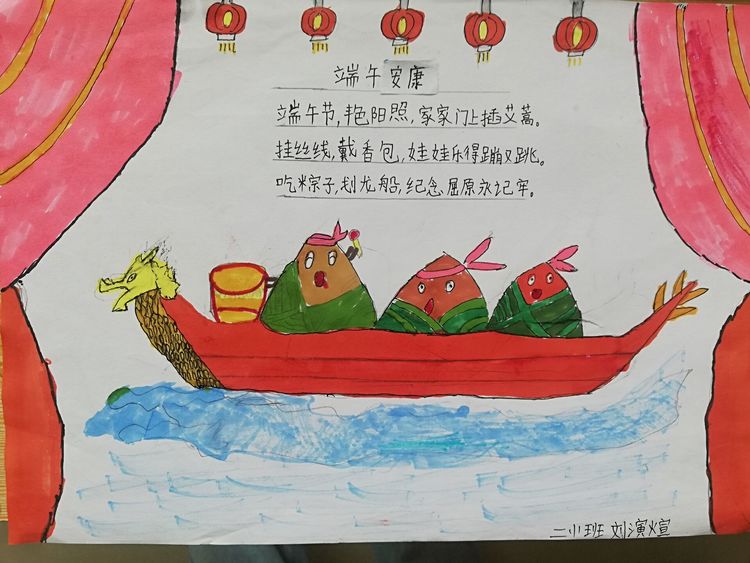 端午安康
端午节,艳阳照,家家门上插艾蒿。
挂丝线,戴香包,娃娃乐得蹦又跳。
吃粽子,划龙船,纪念屈原永记牢。
二小班 刘演煊